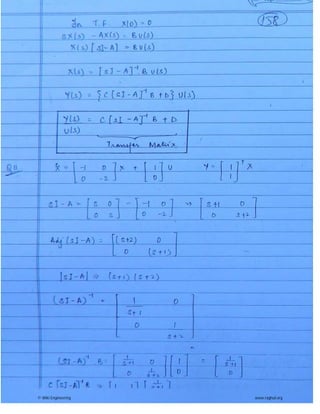 In T.F. X(0) = 0
158
SX(S) - AX(S) = BU(S)
X(S) [SI - A] = BU(S)
X(S) = [SI - A]⁻¹ B U(S)
Y(S) = {C [SI - A]⁻¹ B + D} U(S)
Y(S)/U(S) = C [SI - A]⁻¹ B + D
Transfer Matrix
Ẋ = [-1 0; 0 -2] X + [1; 0] U Y = [1; 1]ᵀ X
SI - A = [S 0; 0 S] - [-1 0; 0 -2] → [S+1 0; 0 S+2]
Adj (SI - A) = [(S+2) 0; 0 (S+1)]
|SI - A| ⇒ (S+1) (S+2)
(SI - A)⁻¹ = [1/(S+1) 0; 0 1/(S+2)]
(SI - A)⁻¹ B = [1/(S+1) 0; 0 1/(S+2)] [1; 0] = [1/(S+1); 0]
C [SI - A]⁻¹ B ⇒ [1 1] [1/(S+1)
© Wiki Engineering
www.raghul.org